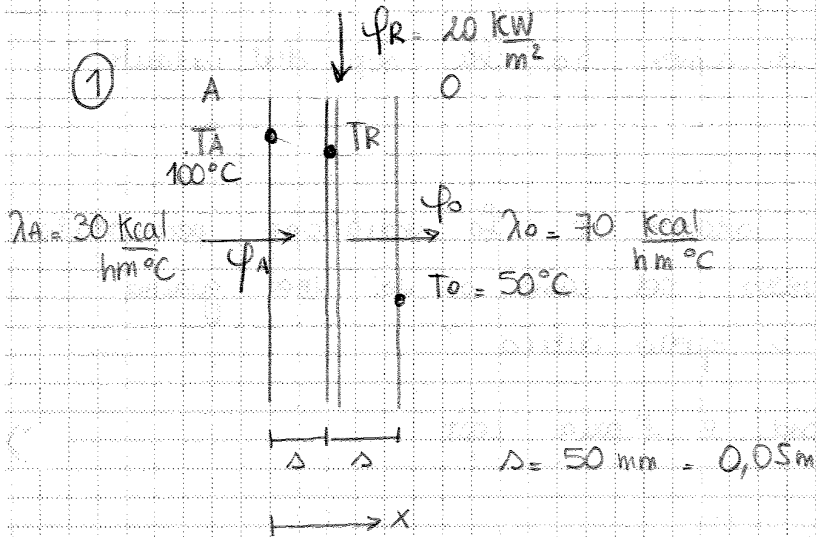 φR = 20 KW/m²
① A O
TA TR
100°C
λA = 30 Kcal/hm°C φA φo λo = 70 Kcal/hm°C
To = 50°C
s s s = 50 mm = 0,05m
x